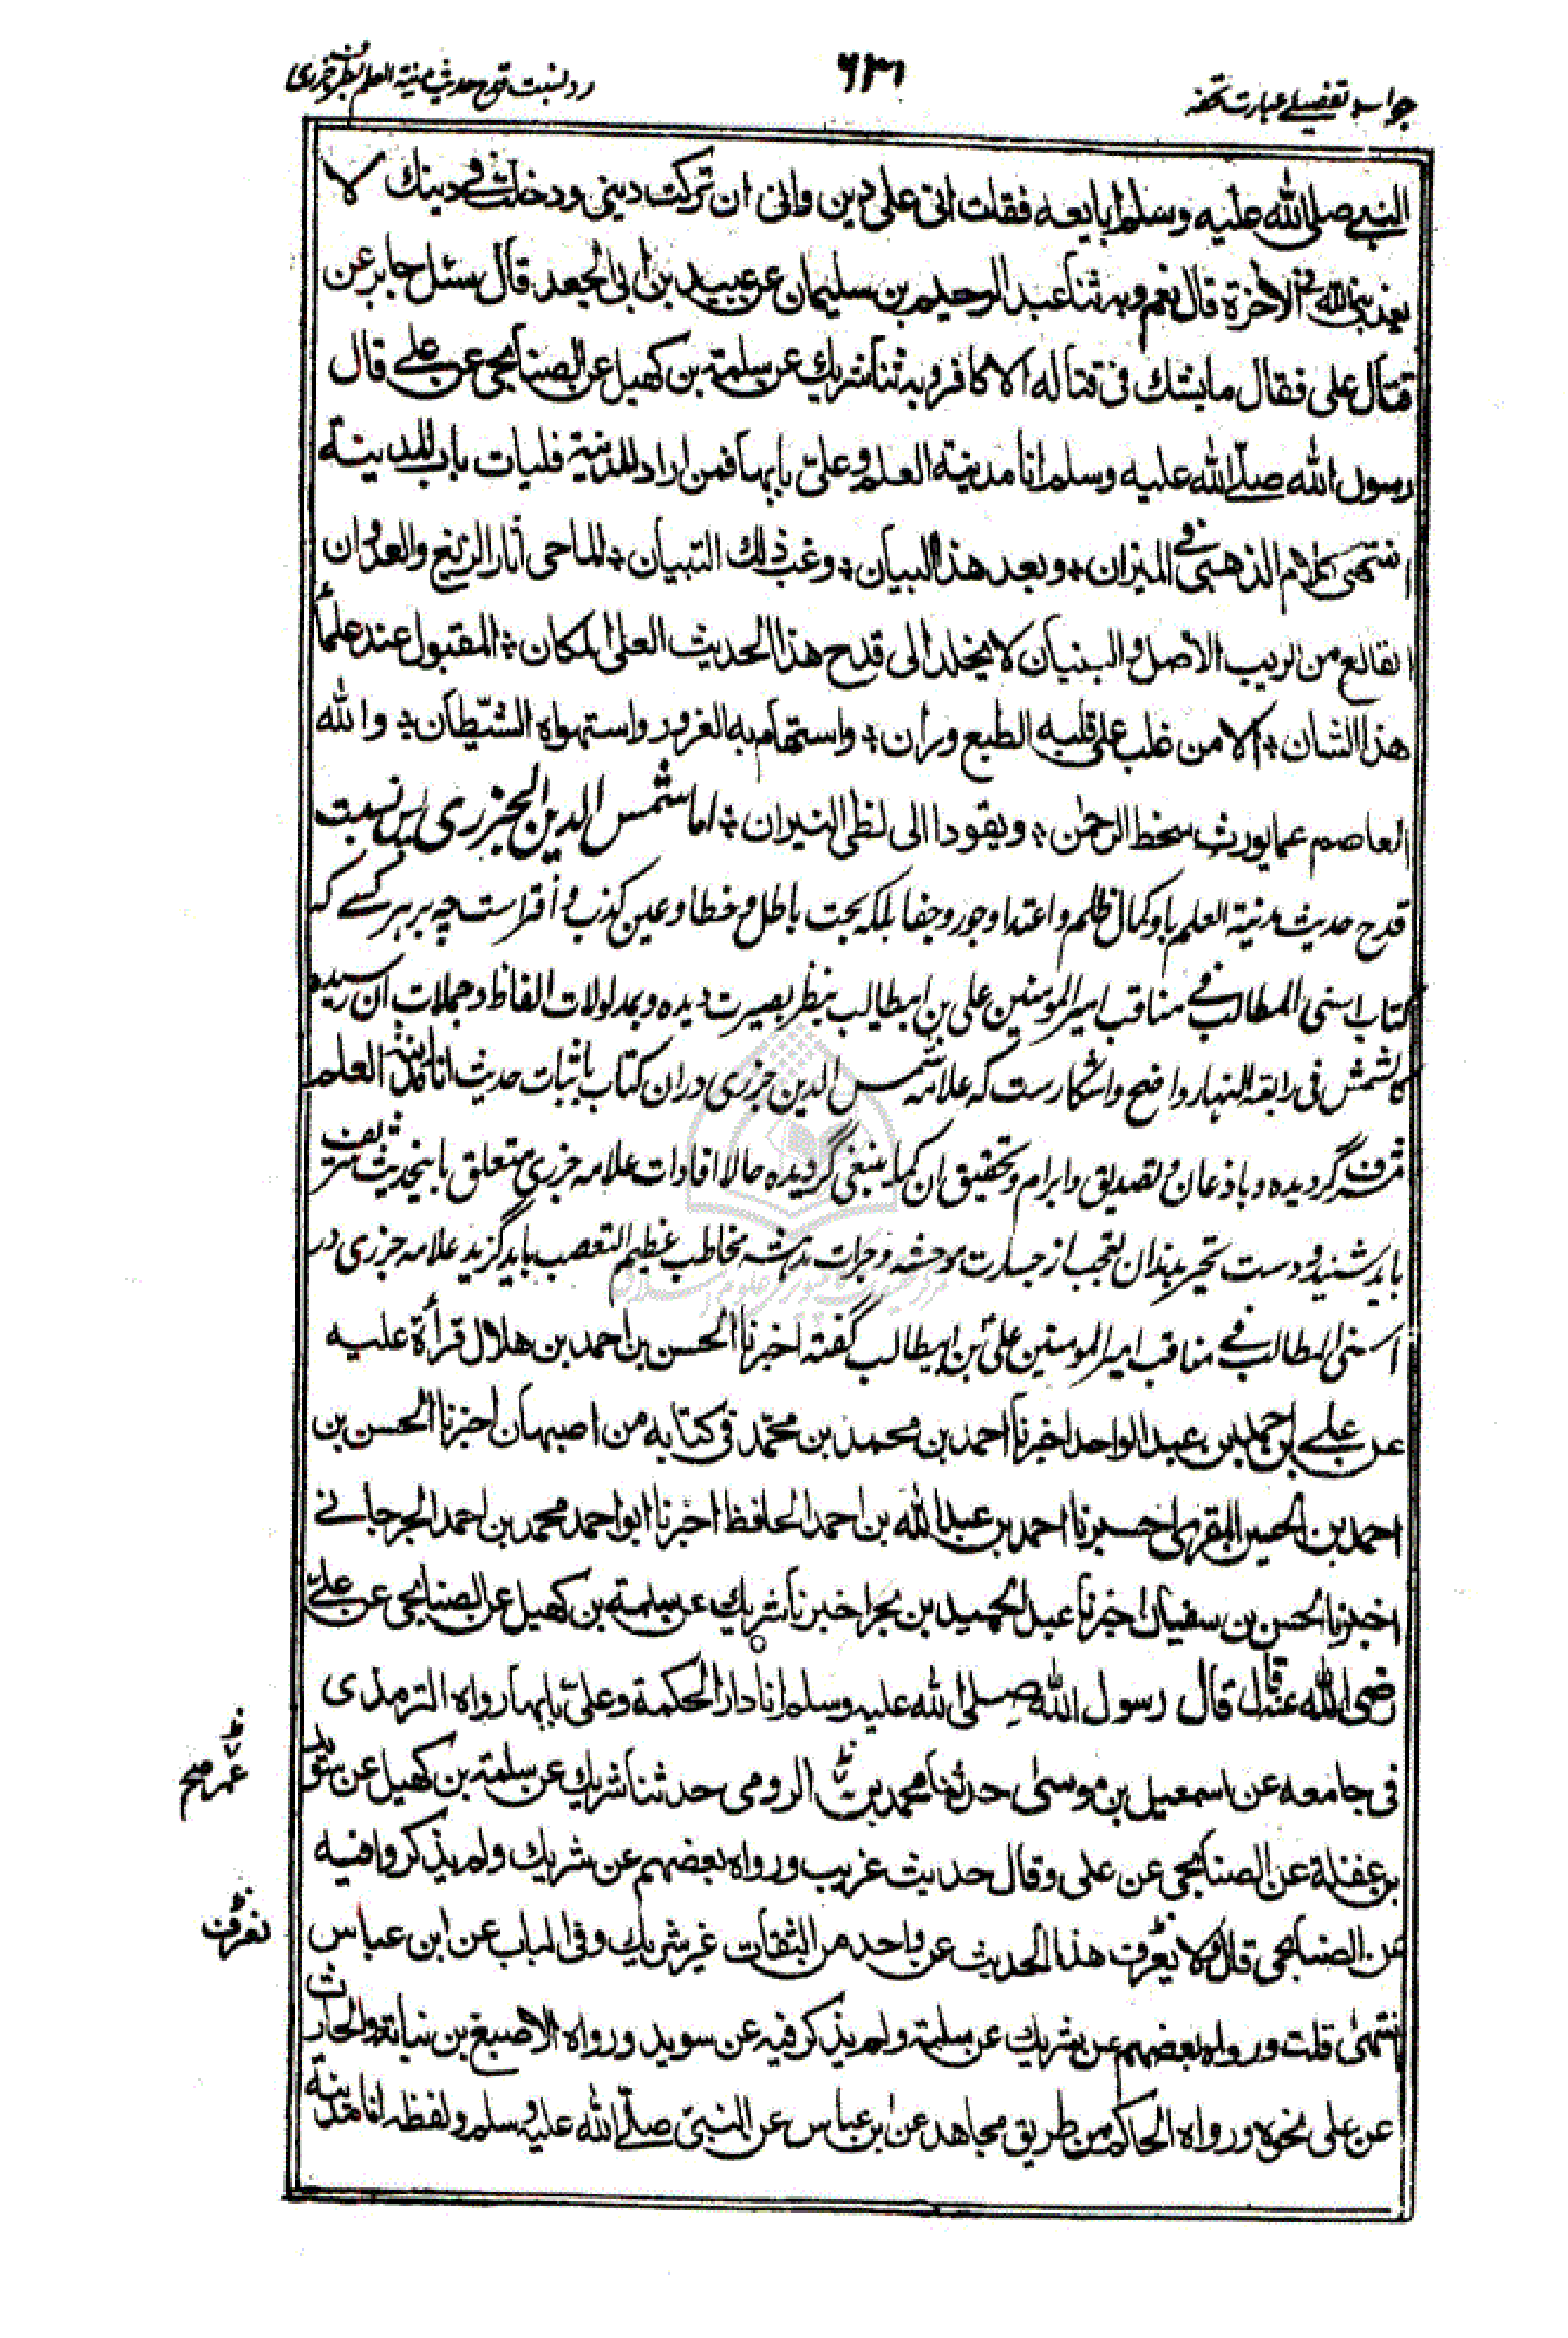 جواب تفصیلے عبارت تحفہ
۶۳۱
رد نسبت قدح حدیث مدینة العلم بطرف جزری
النبی صلی الله علیه وسلم ابایعه فقلت انی علی دین وانی ان ترکت دینی ودخلت فی دینك لا
یعذبنی الله فی الاخرة قال نعم وبه ثنا عبد الرحیم بن سلیمان عن عبید بن ابی الجعد قال سئل جابر عن
قتال علی فقال ما یشك فی قتاله الا کافر وبه ثنا شریك عن سلمة بن کهیل عن الصنابحی عن علے قال
رسول الله صلّی الله علیه وسلم انا مدینة العلم وعلیّ بابها فمن اراد المدینة فلیات باب المدینة
انتهی کلام الذهبی فی المیزان؛ وبعد هذا البیان؛ وغب ذلك التبیان؛ الماحی آثار الزیغ والعدوان
القالع من الریب الاصل والبنیان لا یخلد الی قدح هذا الحدیث العلی المکان؛ المقبول عند علمأ
هذا الشان؛ الا من غلب علی قلبه الطبع وران؛ واستهام به الغرور واستهواه الشیّطان؛ والله
العاصم عما یورث سخط الرحمٰن؛ ویقود الی لظی النیران؛ اما شمس الدین الجزری پس نسبت
قدح حدیث مدینة العلم باو کمال ظلم و اعتدا وجور وجفا بلکه بحت باطل و خطا و عین کذب و افتراست چه بر هر کسے که
کتاب اسنی المطالب فے مناقب امیر المومنین علی بن ابیطالب بنظر بصیرت دیده و بمدلولات الفاظ و جملات ان رسیده
کالشمس فی رابعة النهار واضح و اشکارست که علامه شمس الدین جزری دران کتاب باثبات حدیث انا مدینة العلم
مشرف گردیده و باذعان و تصدیق و ابرام و تحقیق ان کما ینبغی گرویده حالا افادات علامه جزری متعلق باینحدیث شریف
باید شنید و دست تحیر بدندان تعجب از جسارت موحشه و جرات مدهشه مخاطب عظیم التعصب باید گزید علامه جزری در
اسنی المطالب فے مناقب امیر المومنین علیؑ بن ابیطالب گفته اخبرنا الحسن بن احمد بن هلال قرأة علیه
عن علے بن احمد بن عبد الواحد اخبرنا احمد بن محمد بن محمّد فی کتابه من اصبهان اخبرنا الحسن بن
احمد بن الحسین المقری اخبرنا احمد بن عبد الله بن احمد الحافظ اخبرنا ابو احمد محمد بن احمد الجرجانے
اخبرنا الحسن بن سفیان اخبرنا عبد الحمید بن بحر اخبرنا شریك عن سلمة بن کهیل عن الصنابحی عن علیّ
رضی الله عنه قال قال رسول الله صلی الله علیه وسلم انا دار الحکمة وعلیّ بابها رواه الترمذی
فی جامعه عن اسمعیل بن موسیٰ حدثنا محمد بن الرومی حدثنا شریك عن سلمة بن کهیل عن سوید
عمر صح
بن غفلة عن الصنابحی عن علی وقال حدیث غریب ورواه بعضهم عن شریك ولم یذکروا فیه
عن الصنابحی قال ولا یعرف هذا الحدیث عن واحد من الثقات غیر شریك وفی الباب عن ابن عباس
نعرف
انتهیٰ قلت ورواه بعضهم عن شریك عن سلمة ولم یذکر فیه عن سوید ورواه الاصبغ بن نباتة والحارث
عن علی نحوه ورواه الحاکم من طریق مجاهد عن ابن عباس عن النبیّ صلّی الله علیه وسلم ولفظه انا مدینة